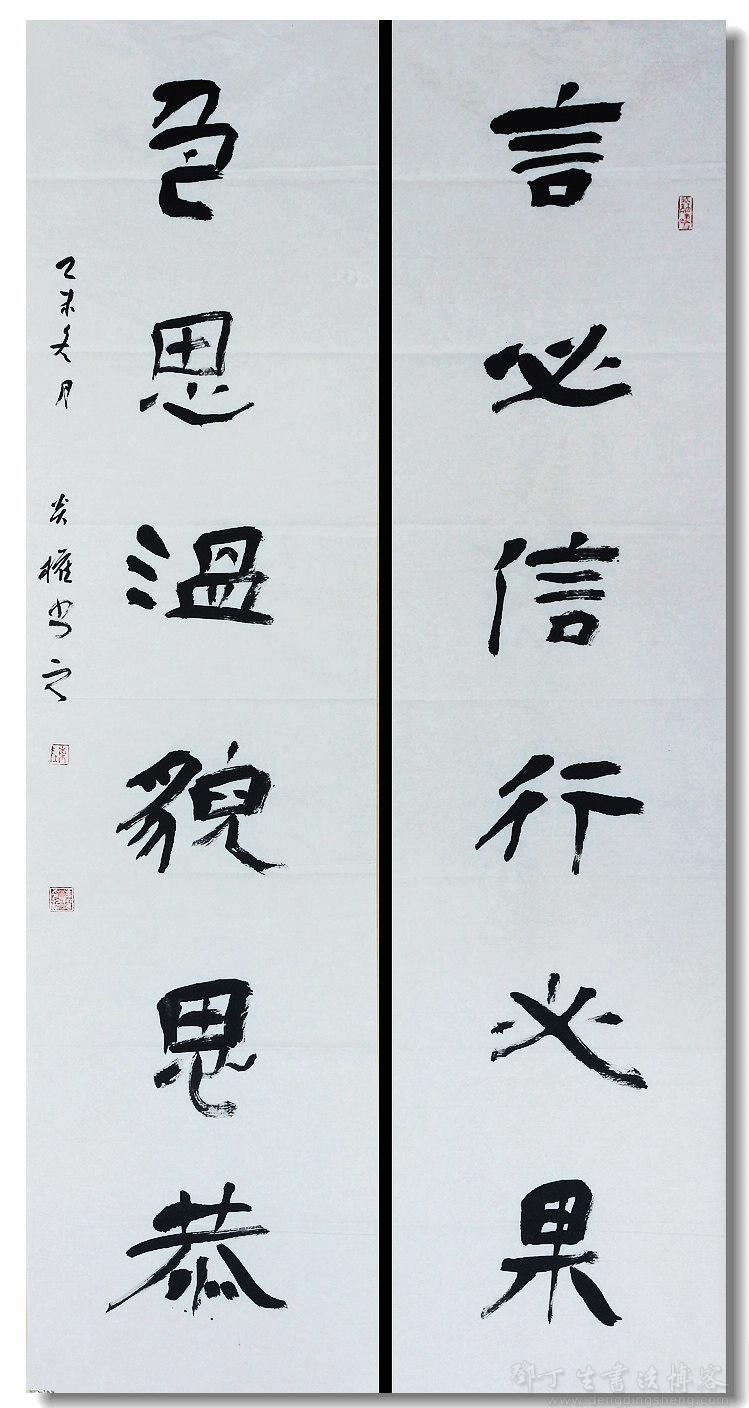 言必信行必果
色思温貌思恭
乙未冬月
炎權書之
鄧丁生書法博客
www.dengdingsheng.com